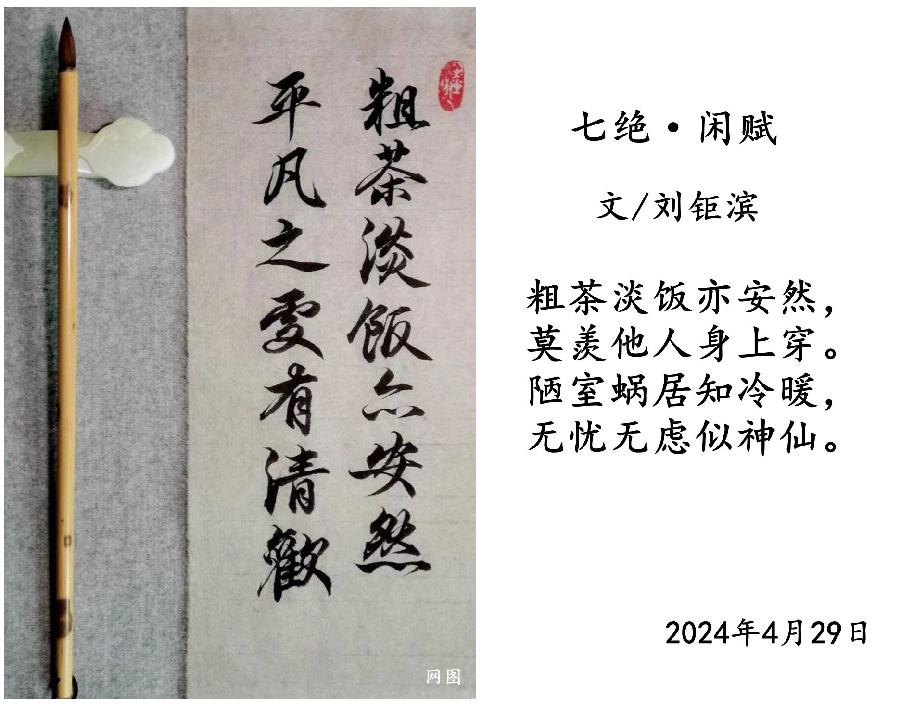 粗茶淡飯亦安然
平凡之處有清歡
网图
七绝·闲赋
文/刘钜滨
粗茶淡饭亦安然，
莫羡他人身上穿。
陋室蜗居知冷暖，
无忧无虑似神仙。
2024年4月29日